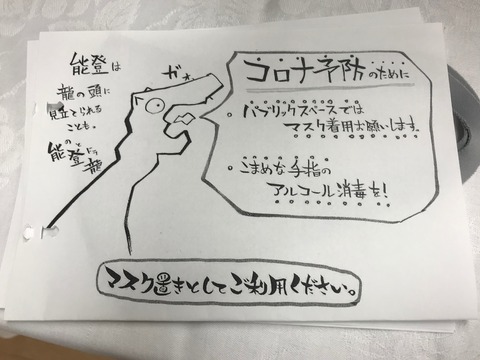 能登は
龍の頭に
見立てられる
ことも。
能登龍
のと ドラ
ガオ
コロナ予防のために
・パブリックスペースでは
マスク着用お願いします。
・こまめな手指の
アルコール消毒を!
マスク置きとしてご利用ください。